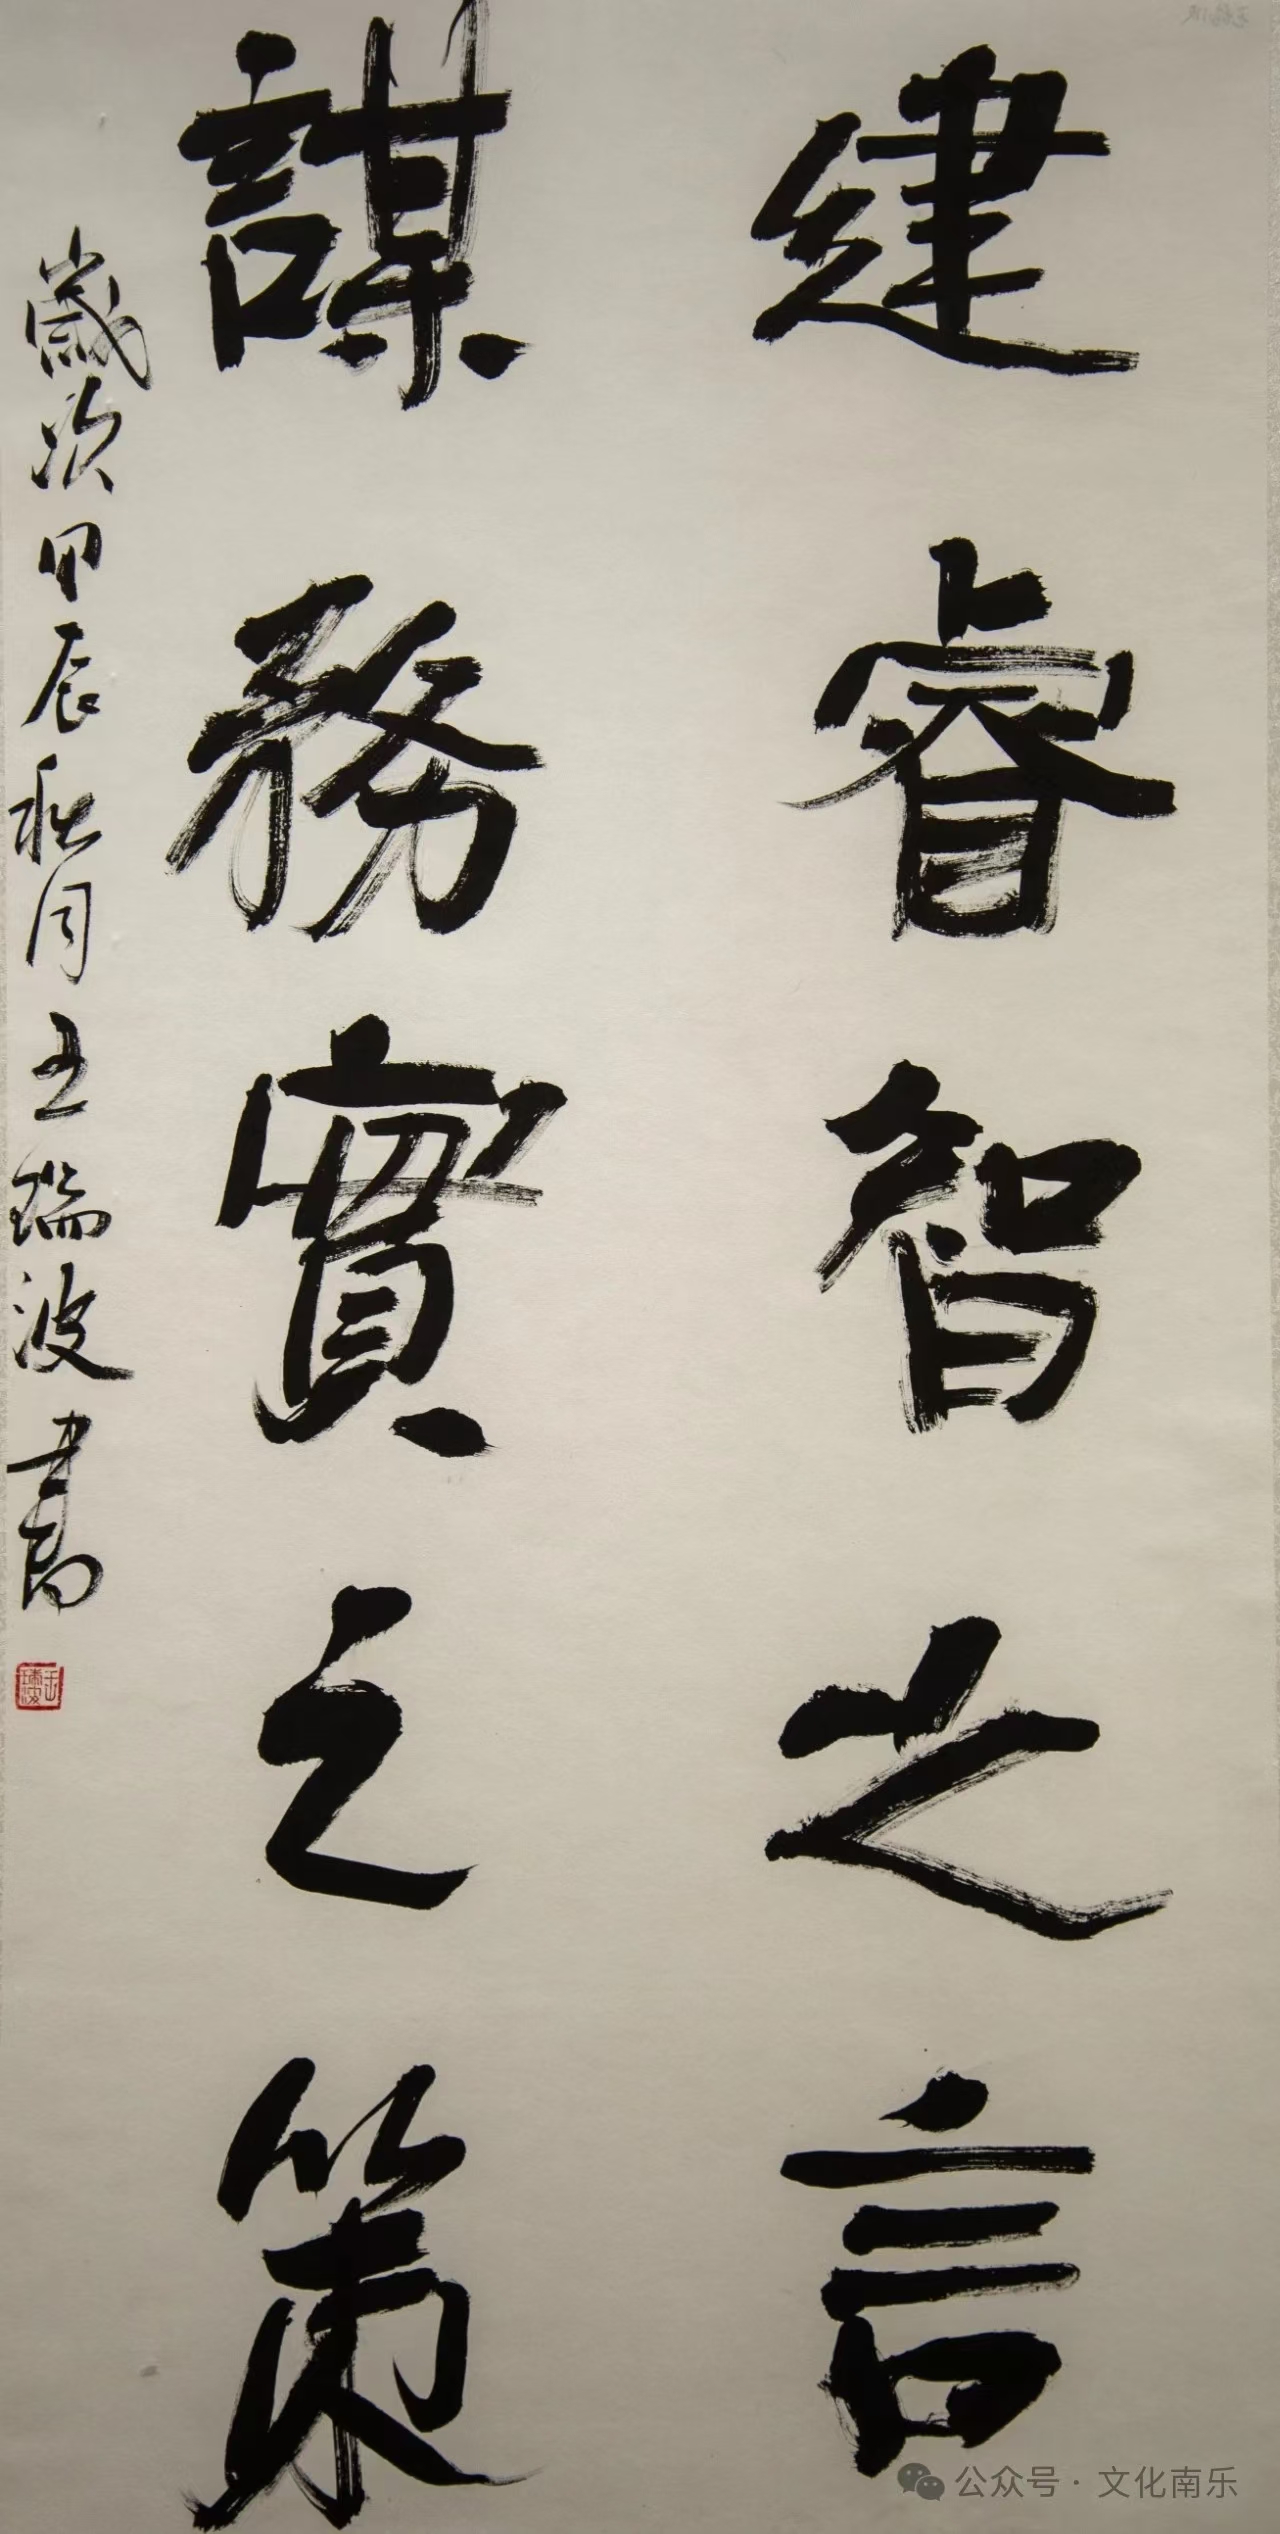 建睿智之言
謀務實之策
歲次甲辰秋月王瑞波書
王瑞波
公众号·文化南乐